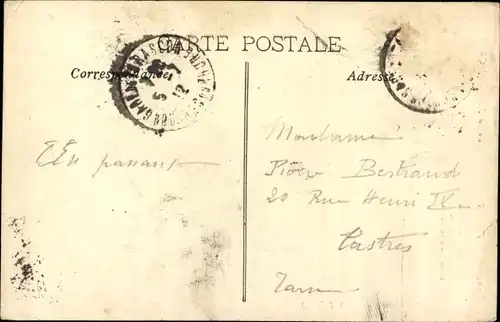 CARTE POSTALE
Correspondance
Adresse
En passant
Madame
Pierre Bertrand
20 Rue Henri IV
Castres
Tarn